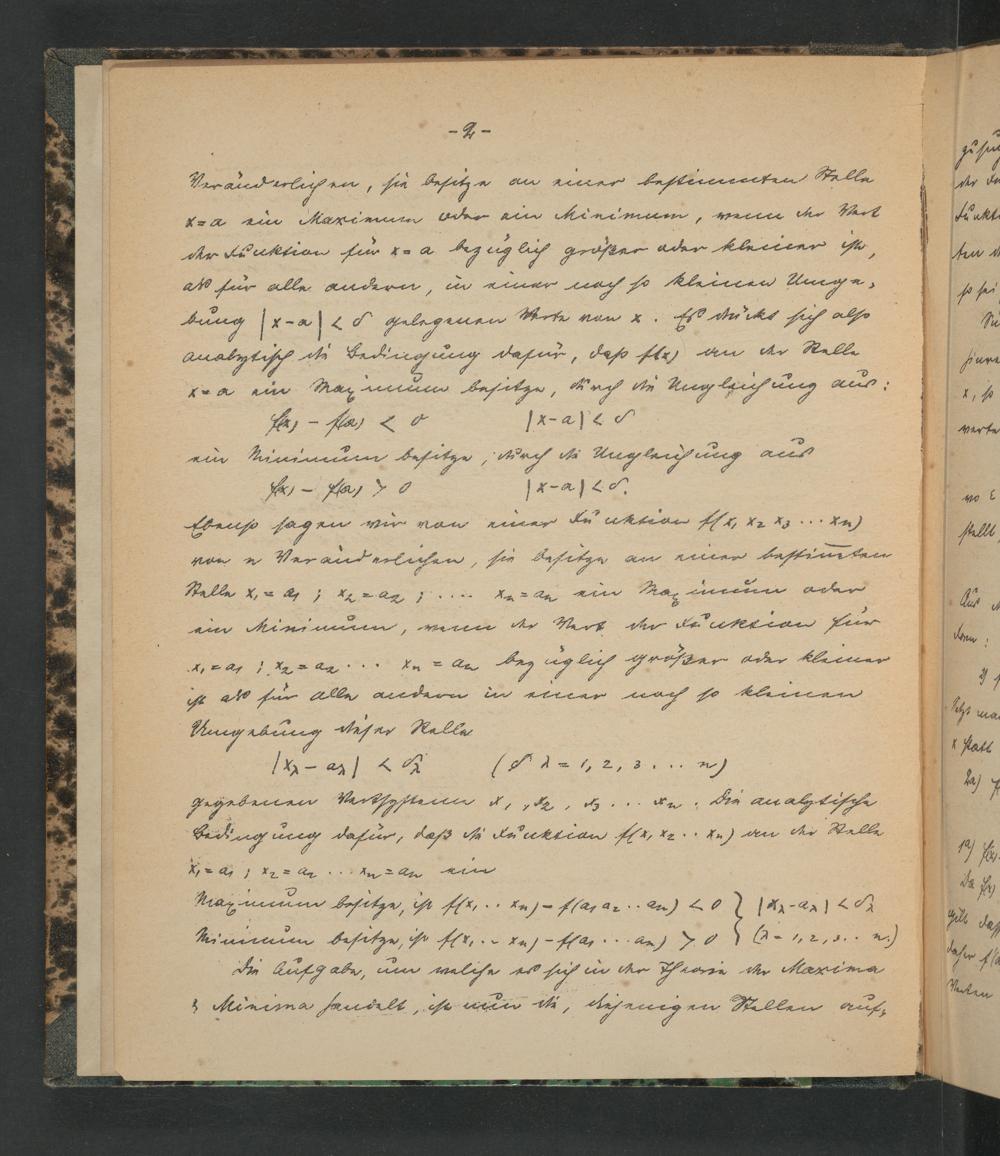 - 2 -
Veränderlichen, sie besitze an einer bestimmten Stelle
x = a ein Maximum oder ein Minimum, wenn der Wert
der Funktion für x = a bezüglich größer oder kleiner ist,
als für alle andern, in einer noch so kleinen Umge-
bung |x-a| < δ gelegenen Werte von x. Es drückt sich also
analytisch die Bedingung dafür, daß f(x) an der Stelle
x = a ein Maximum besitze, durch die Ungleichung aus:
f(x) - f(a) < 0 |x-a| < δ
ein Minimum besitze, durch die Ungleichung aus
f(x) - f(a) > 0 |x-a| < δ.
Ebenso sagen wir von einer Funktion f(x₁ x₂ x₃ ... xₙ)
von n Veränderlichen, sie besitze an einer bestim̅ten
Stelle x₁ = a₁ ; x₂ = a₂ ; .... xₙ = aₙ ein Maximum oder
ein Minimum, wenn der Wert der Funktion für
x₁ = a₁ ; x₂ = a₂ ... xₙ = aₙ bezüglich größer oder kleiner
ist als für alle andern in einer noch so kleinen
Umgebung dieser Stelle
|x_λ - a_λ| < δ_λ (δ λ = 1, 2, 3 ... n)
gegebenen Wertsysteme x₁, x₂, x₃ ... xₙ. Die analytische
Bedingung dafür, daß die Funktion f(x₁ x₂ .. xₙ) an der Stelle
x₁ = a₁ ; x₂ = a₂ ... xₙ = aₙ ein
Maximum besitze, ist f(x₁ .. xₙ) - f(a₁ a₂ .. aₙ) < 0 } |x_λ - a_λ| < δ_λ
Minimum besitze, ist f(x₁ .. xₙ) - f(a₁ ... aₙ) > 0 } (λ = 1, 2, 3 .. n.)
Die Aufgabe, um welche es sich in der Theorie der Maxima
& Minima handelt, ist nun die, diejenigen Stellen auf-